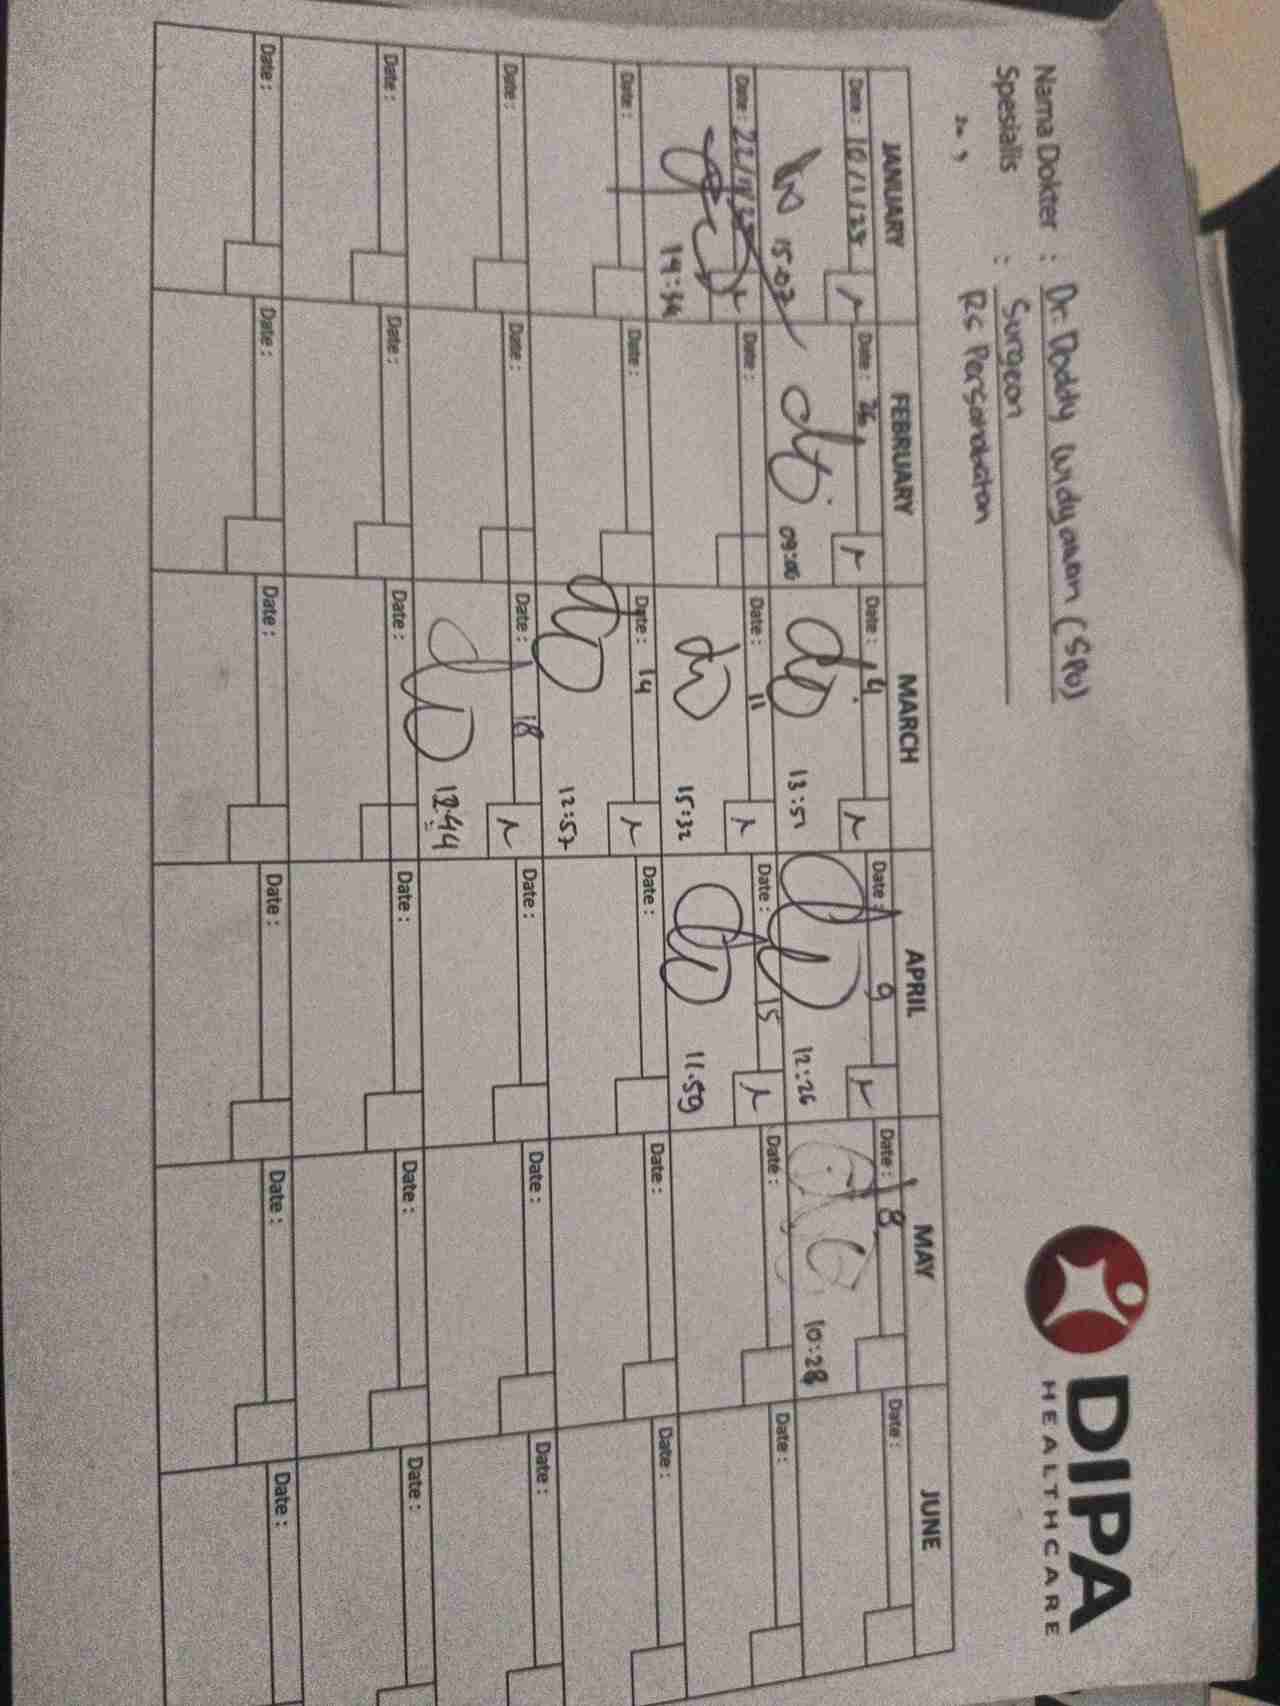 DIPA
HEALTHCARE
Nama Dokter : Dr. Doddy Widyawan (SpU)
Spesialis : Surgeon
RS Persahabatan
JANUARY FEBRUARY MARCH APRIL MAY JUNE
Date : 10/1/25 Date : 26 Date : 4 Date : 9 Date : 8 Date :
15.07 09:06 13:51 12:26 10:28
Date : Date : Date : 11 Date : 15 Date : Date :
14:34 15:32 11.59
Date : Date : Date : 14 Date : Date : Date :
12:57
Date : Date : Date : 18 Date : Date : Date :
12.44
Date : Date : Date : Date : Date : Date :
Date : Date : Date : Date : Date : Date :